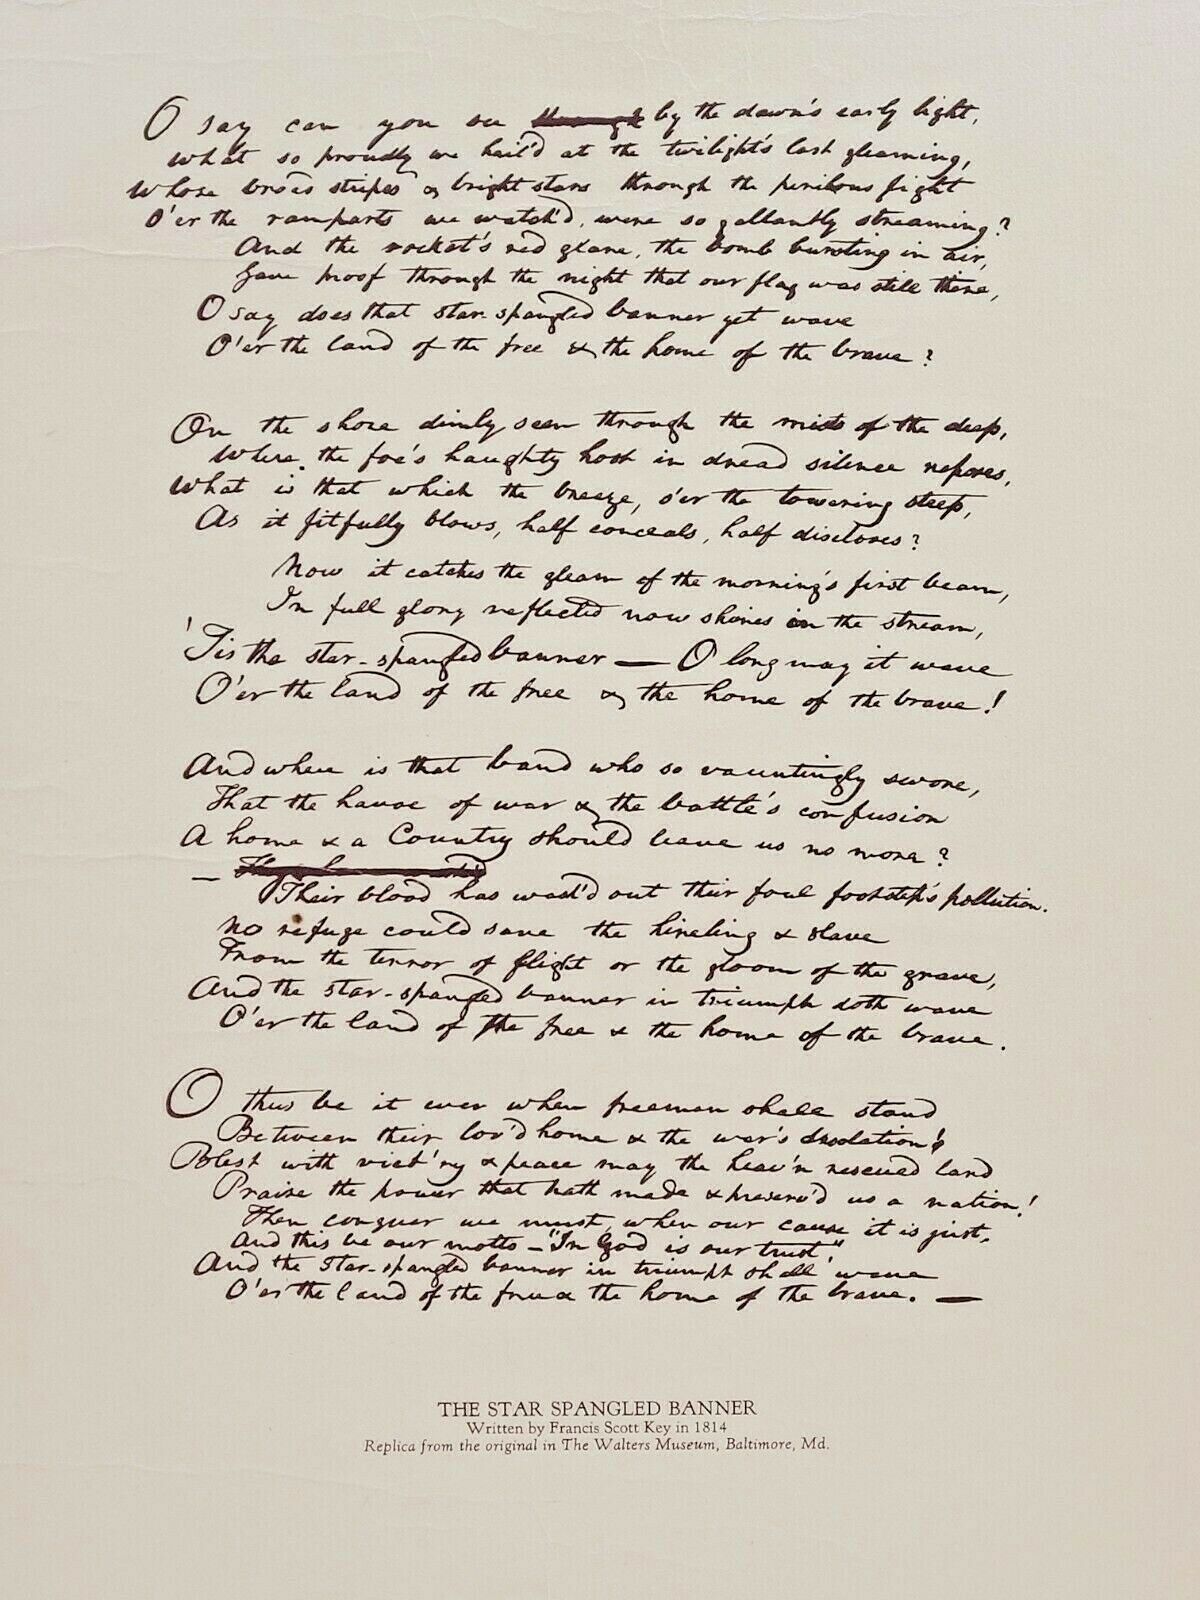 O say can you see ~~through~~ by the dawn's early light,
What so proudly we hail'd at the twilight's last gleaming,
Whose broad stripes & bright stars through the perilous fight
O'er the ramparts we watch'd, were so gallantly streaming?
And the rocket's red glare, the bomb bursting in air,
Gave proof through the night that our flag was still there,
O say does that star-spangled banner yet wave
O'er the land of the free & the home of the brave?
On the shore dimly seen through the mists of the deep,
Where the foe's haughty host in dread silence reposes,
What is that which the breeze, o'er the towering steep,
As it fitfully blows, half conceals, half discloses?
Now it catches the gleam of the morning's first beam,
In full glory reflected now shines in the stream,
'Tis the star-spangled banner — O long may it wave
O'er the land of the free & the home of the brave!
And where is that band who so vauntingly swore,
That the havoc of war & the battle's confusion
A home & a Country should leave us no more?
—
Their blood has wash'd out their foul footstep's pollution.
No refuge could save the hireling & slave
From the terror of flight or the gloom of the grave,
And the star-spangled banner in triumph doth wave
O'er the land of the free & the home of the brave.
O thus be it ever when freemen shall stand
Between their lov'd home & the war's desolation!
Blest with vict'ry & peace may the heav'n rescued land
Praise the power that hath made & preserv'd us a nation!
Then conquer we must, when our cause it is just,
And this be our motto — "In God is our trust,"
And the star-spangled banner in triumph shall wave
O'er the land of the free & the home of the brave. —
THE STAR SPANGLED BANNER
Written by Francis Scott Key in 1814
Replica from the original in The Walters Museum, Baltimore, Md.